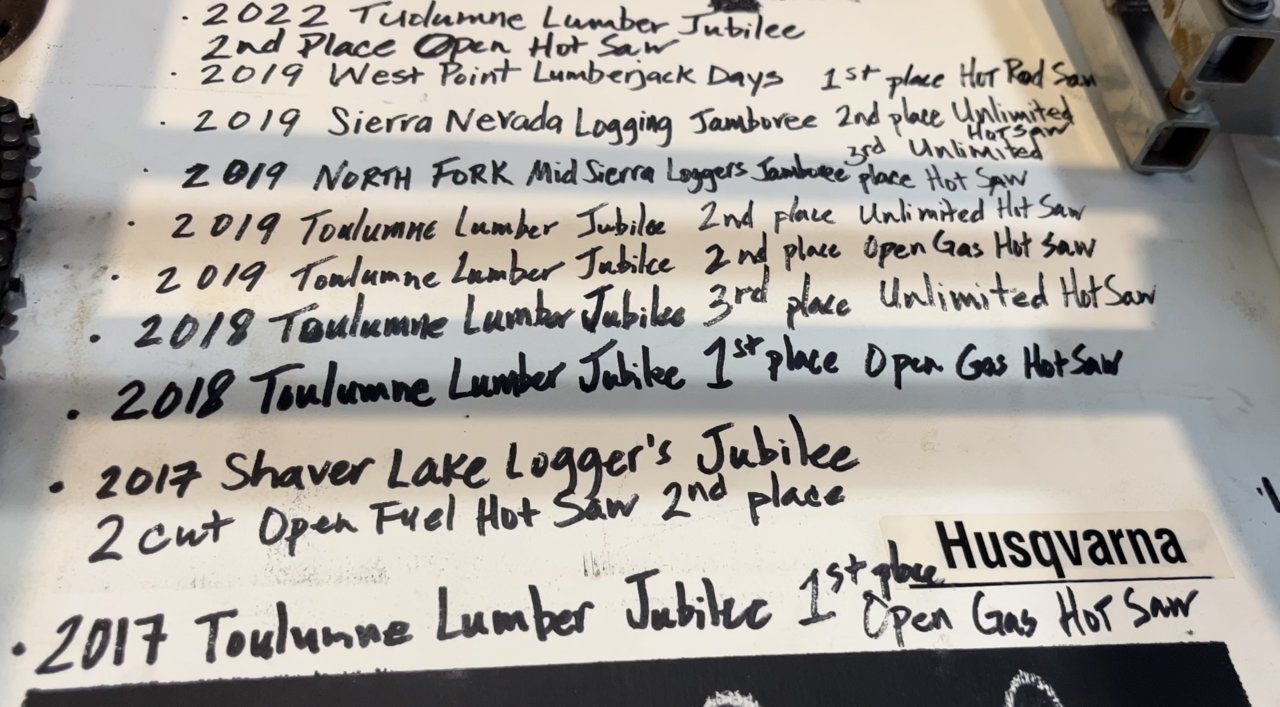 · 2022 Tuolumne Lumber Jubilee
2nd Place Open Hot Saw
· 2019 West Point Lumberjack Days 1st place Hot Rod Saw
· 2019 Sierra Nevada Logging Jamboree 2nd place Unlimited
Hot Saw
3rd Unlimited
· 2019 NORTH FORK Mid Sierra Loggers Jamboree place Hot Saw
· 2019 Toulumne Lumber Jubilee 2nd place Unlimited Hot Saw
· 2019 Toulumne Lumber Jubilee 2nd place Open Gas Hot Saw
· 2018 Toulumne Lumber Jubilee 3rd place Unlimited Hot Saw
· 2018 Toulumne Lumber Jubilee 1st place Open Gas Hot Saw
· 2017 Shaver Lake Logger's Jubilee
2 cut Open Fuel Hot Saw 2nd place
Husqvarna
· 2017 Toulumne Lumber Jubilee 1st place
Open Gas Hot Saw